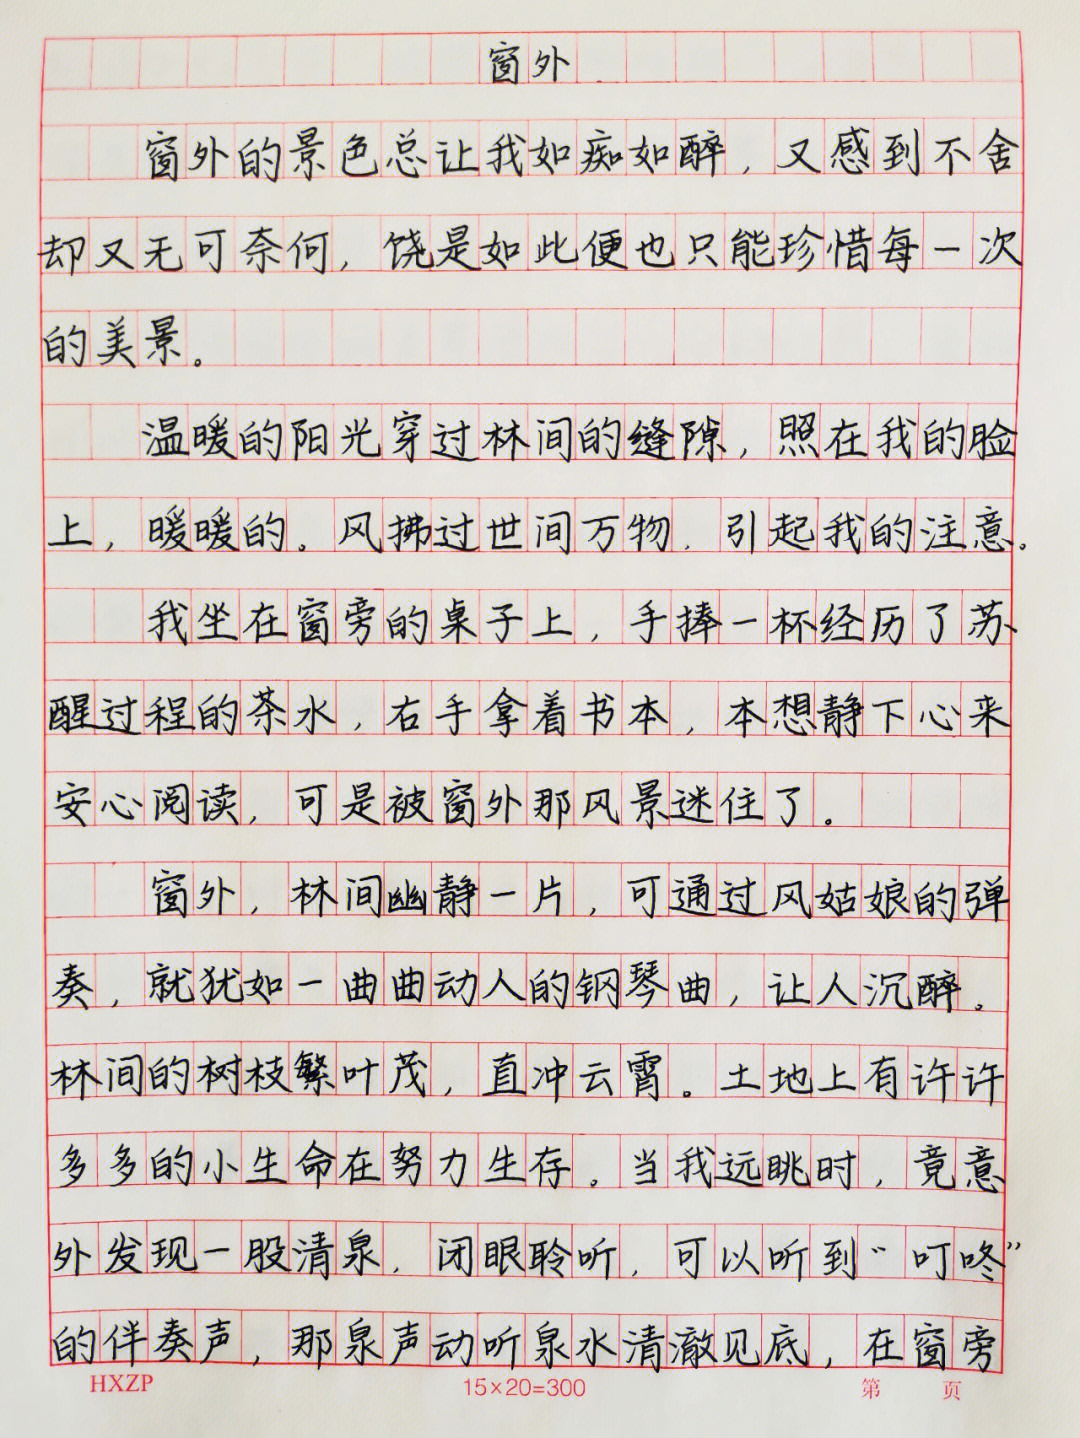 窗外
窗外的景色总让我如痴如醉，又感到不舍
却又无可奈何，饶是如此便也只能珍惜每一次
的美景。
温暖的阳光穿过林间的缝隙，照在我的脸
上，暖暖的。风拂过世间万物，引起我的注意。
我坐在窗旁的桌子上，手捧一杯经历了苏
醒过程的茶水，右手拿着书本，本想静下心来
安心阅读，可是被窗外那风景迷住了。
窗外，林间幽静一片，可通过风姑娘的弹
奏，就犹如一曲曲动人的钢琴曲，让人沉醉。
林间的树枝繁叶茂，直冲云霄。土地上有许许
多多的小生命在努力生存。当我远眺时，竟意
外发现一股清泉，闭眼聆听，可以听到“叮咚”
的伴奏声，那泉声动听泉水清澈见底，在窗旁
HXZP 15×20=300 第 页